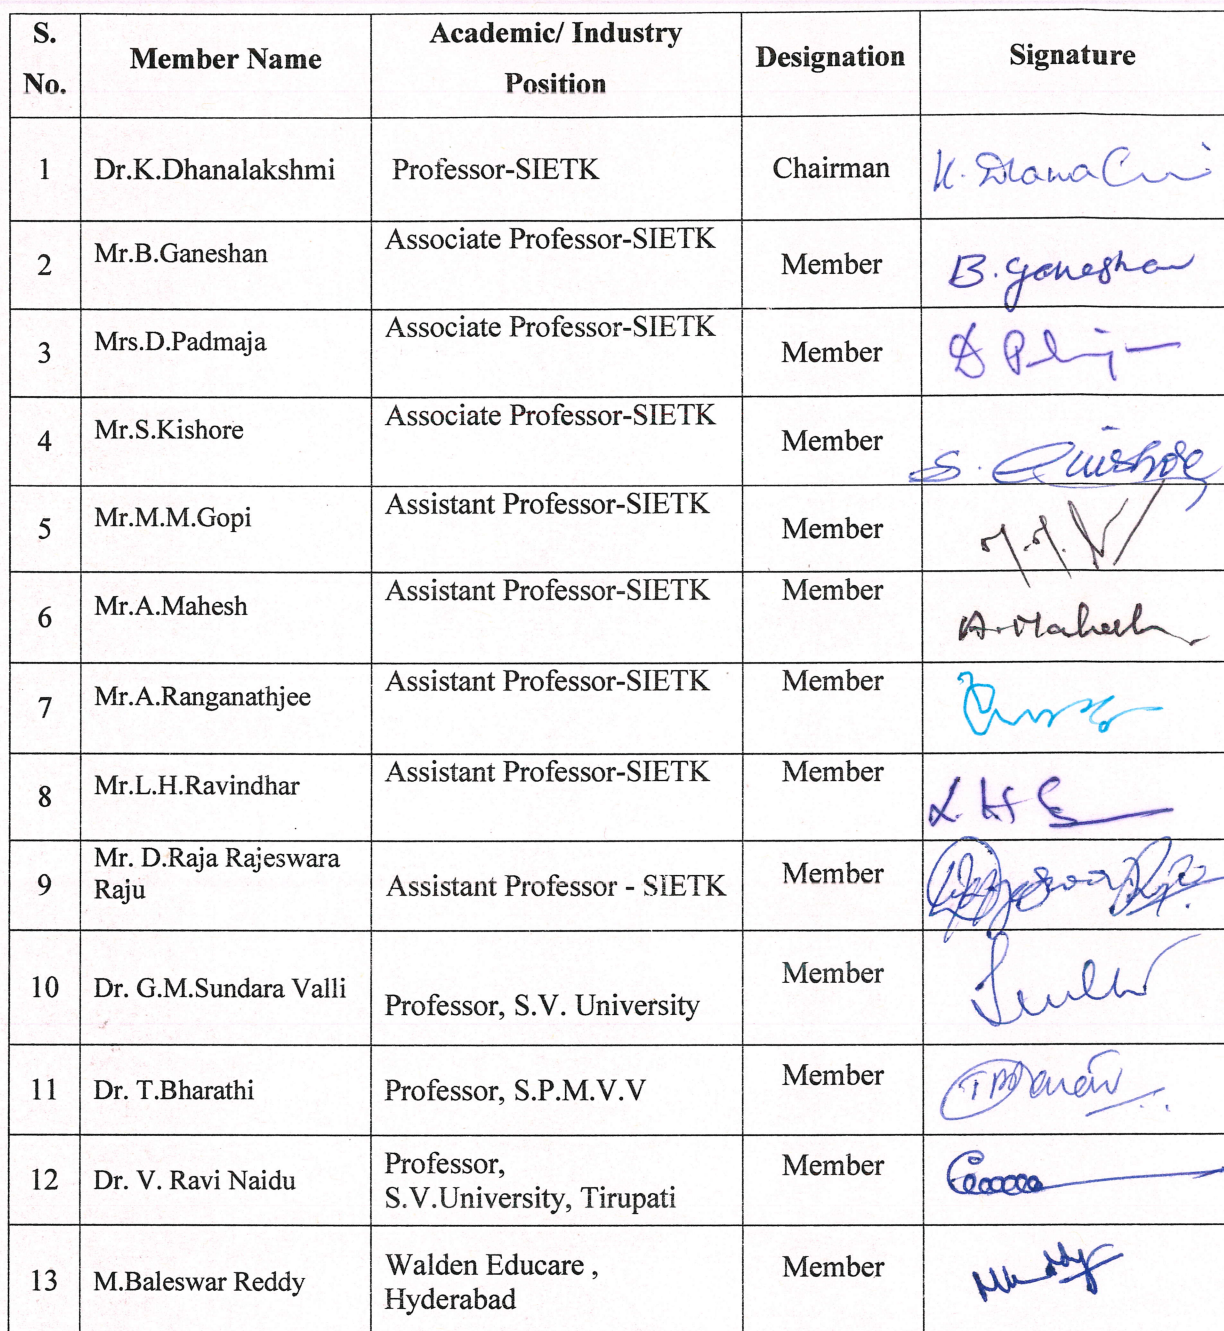 S. No. Member Name Academic/ Industry Position Designation Signature
1 Dr.K.Dhanalakshmi Professor-SIETK Chairman
2 Mr.B.Ganeshan Associate Professor-SIETK Member B.Ganeshan
3 Mrs.D.Padmaja Associate Professor-SIETK Member
4 Mr.S.Kishore Associate Professor-SIETK Member
5 Mr.M.M.Gopi Assistant Professor-SIETK Member
6 Mr.A.Mahesh Assistant Professor-SIETK Member A.Mahesh
7 Mr.A.Ranganathjee Assistant Professor-SIETK Member
8 Mr.L.H.Ravindhar Assistant Professor-SIETK Member
9 Mr. D.Raja Rajeswara Raju Assistant Professor - SIETK Member
10 Dr. G.M.Sundara Valli Professor, S.V. University Member
11 Dr. T.Bharathi Professor, S.P.M.V.V Member
12 Dr. V. Ravi Naidu Professor, S.V.University, Tirupati Member
13 M.Baleswar Reddy Walden Educare , Hyderabad Member